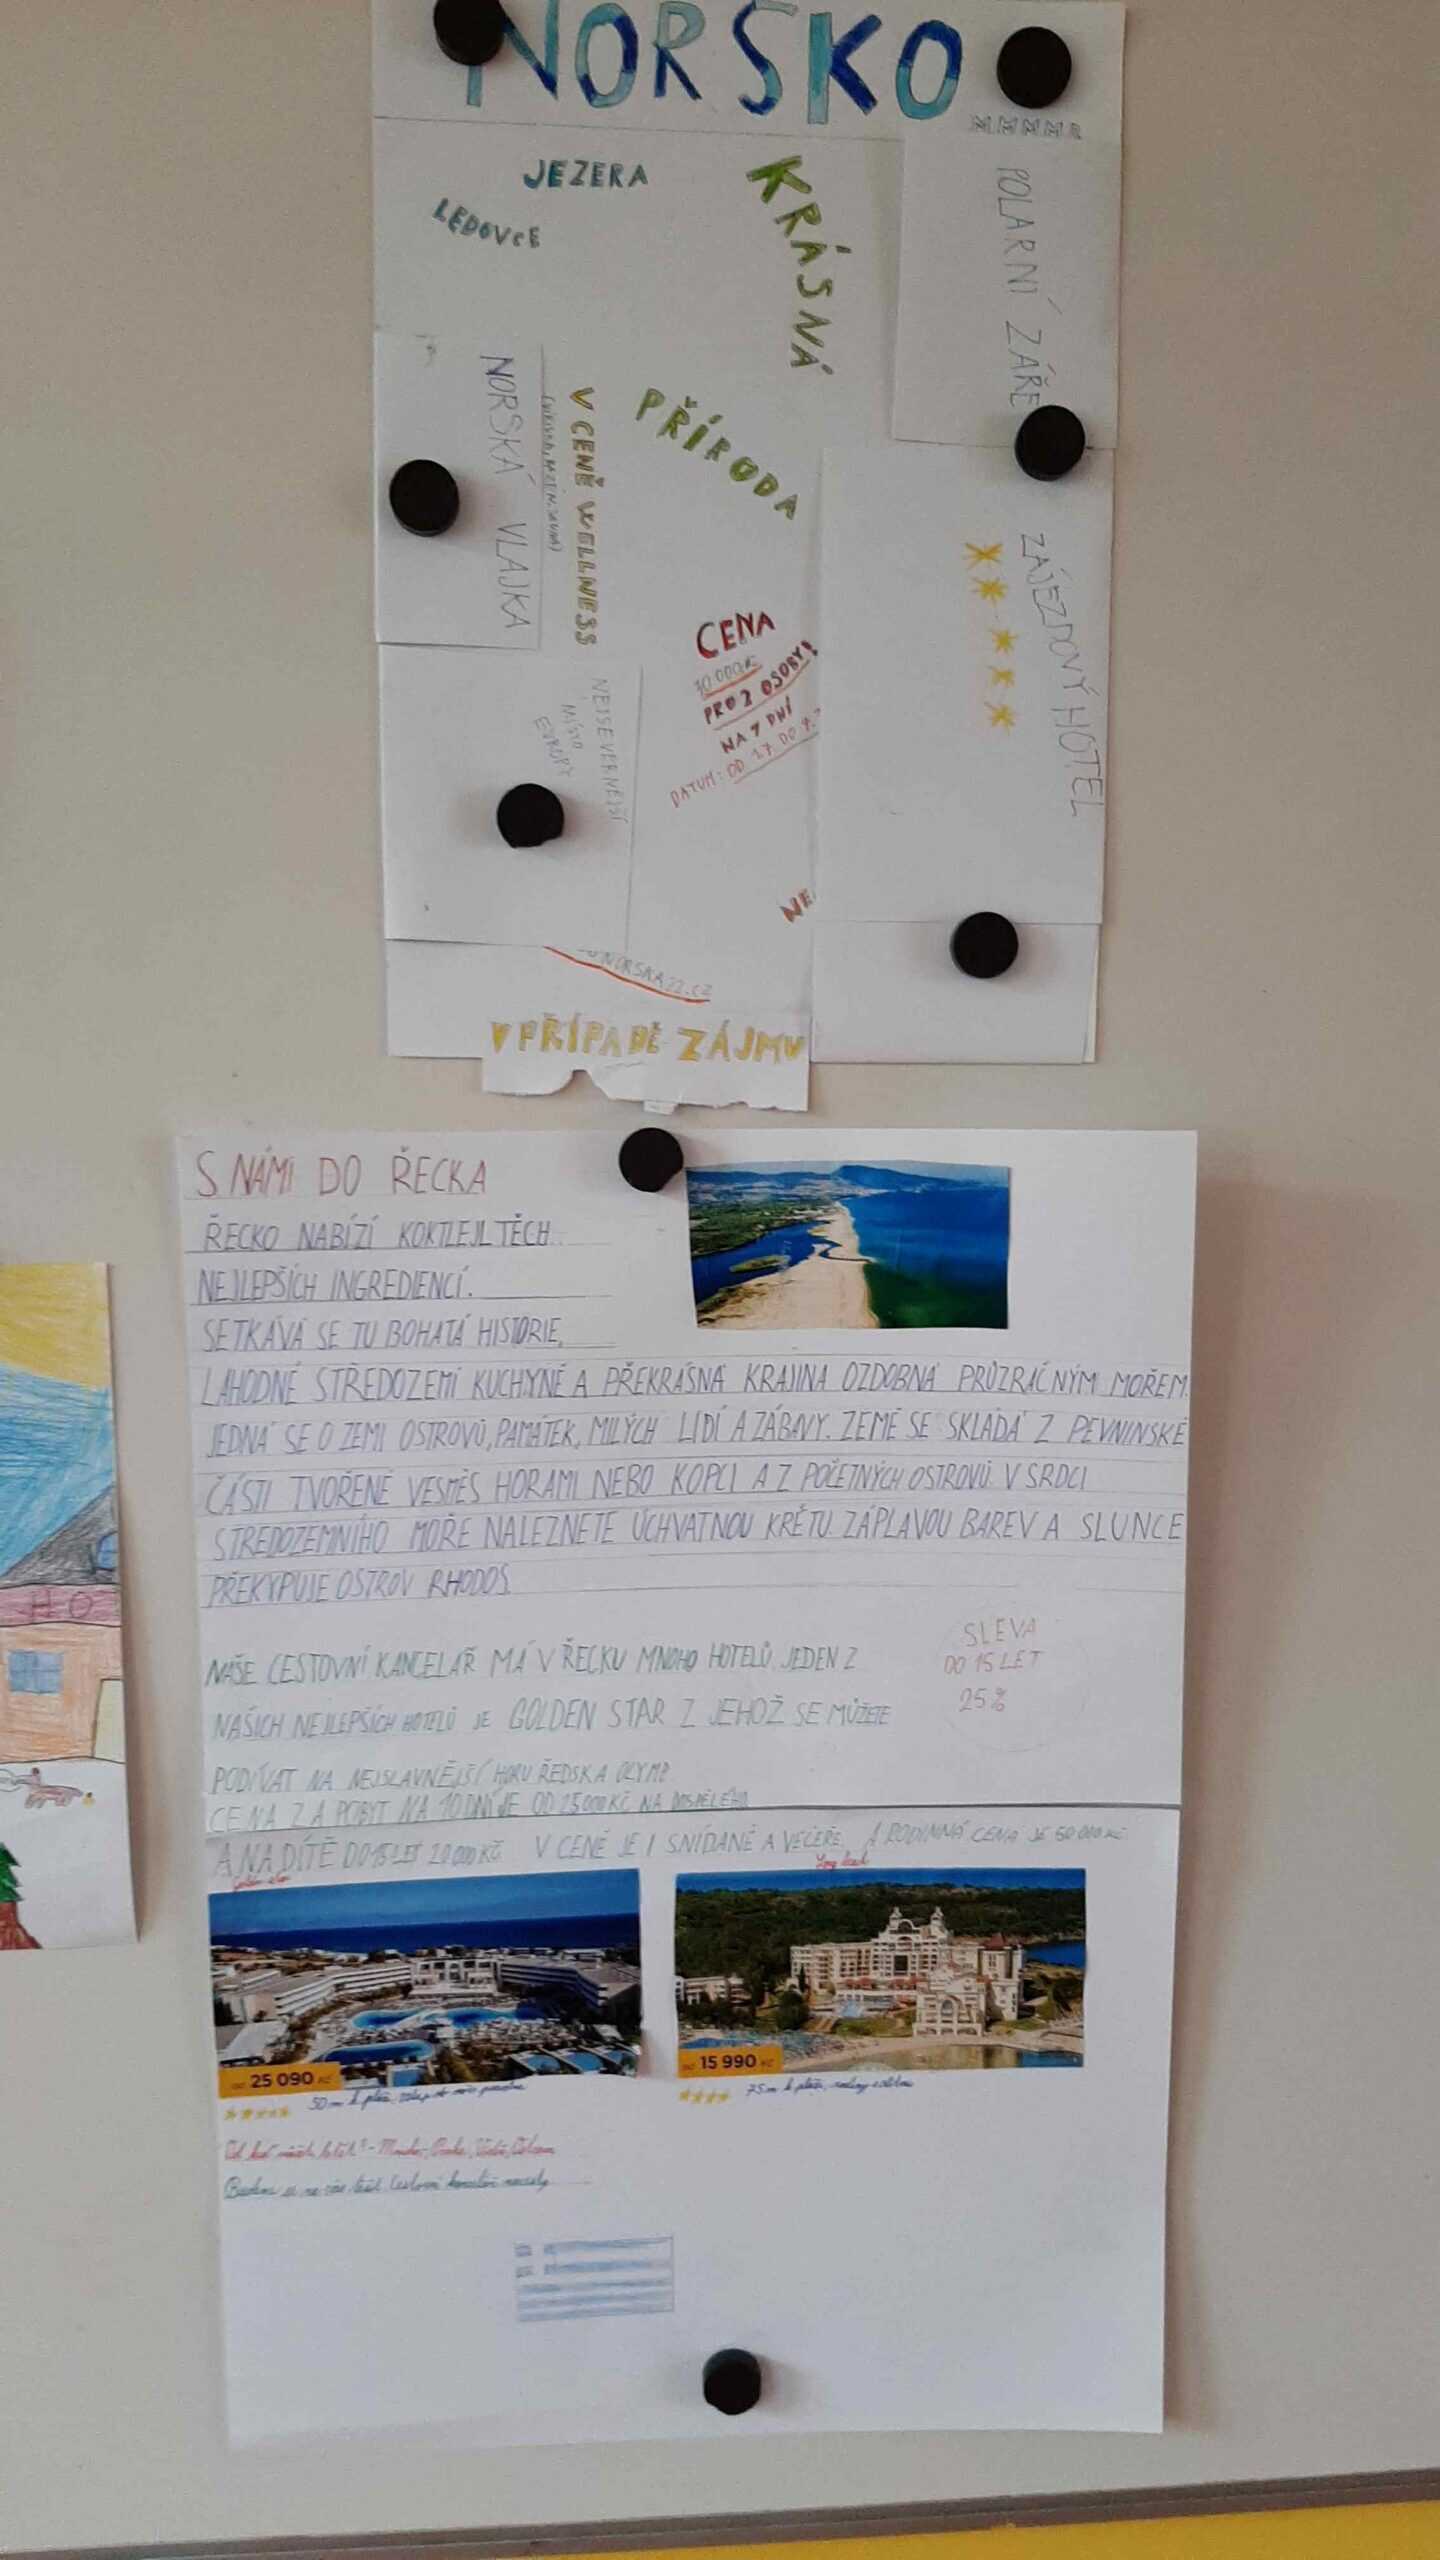 NORSKO
JEZERA
LEDOVCE
KRÁSNÁ
PŘÍRODA
POLARNÍ ZÁŘE
NORSKÁ VLAJKA
V CENĚ WELLNESS
ZÁJEZDOVÝ HOTEL
CENA
PRO 2 OSOBY!
NA 7 DNÍ
DATUM: OD 1.7. DO
NEJSEVERNĚJŠÍ
MÍSTO
EVROPY
NORSKA22.CZ
V PŘÍPADĚ ZÁJMU
S NÁMI DO ŘECKA
ŘECKO NABÍZÍ KOKTLEJL TĚCH
NEJLEPŠÍCH INGREDIENCÍ.
SETKÁVÁ SE TU BOHATÁ HISTORIE,
LAHODNÉ STŘEDOZEMÍ KUCHYNĚ A PŘEKRÁSNÁ KRAJINA OZDOBNÁ PRŮZRAČNÝM MOŘEM.
JEDNÁ SE O ZEMI OSTROVŮ, PAMÁTEK, MILÝCH LIDÍ A ZÁBAVY. ZEMĚ SE SKLÁDÁ Z PEVNINSKÉ
ČÁSTI TVOŘENÉ VESMĚS HORAMI NEBO KOPCI A Z POČETNÝCH OSTROVŮ. V SRDCI
STŘEDOZEMNÍHO MOŘE NALEZNETE ÚCHVATNOU KRÉTU. ZÁPLAVOU BAREV A SLUNCE
PŘEKYPUJE OSTROV RHODOS.
NAŠE CESTOVNÍ KANCELÁŘ MÁ V ŘECKU MNOHO HOTELŮ. JEDEN Z
NAŠICH NEJLEPŠÍCH HOTELŮ JE GOLDEN STAR Z JEHOŽ SE MŮŽETE
PODÍVAT NA NEJSLAVNĚJŠÍ HORU ŘEDSKA OLYMP.
CENA ZA POBYT NA 10 DNÍ JE OD 25000 KČ NA DOSPĚLÉHO
A NA DÍTĚ DO 15 LET 20000 KČ V CENĚ JE I SNÍDANĚ A VEČEŘE. A RODINNÁ CENA JE 50000 KČ
SLEVA
DO 15 LET
25%
Golden star
OD 25 090 KČ
OD 15 990 KČ
50m k pláži,
75m k pláži,
HO